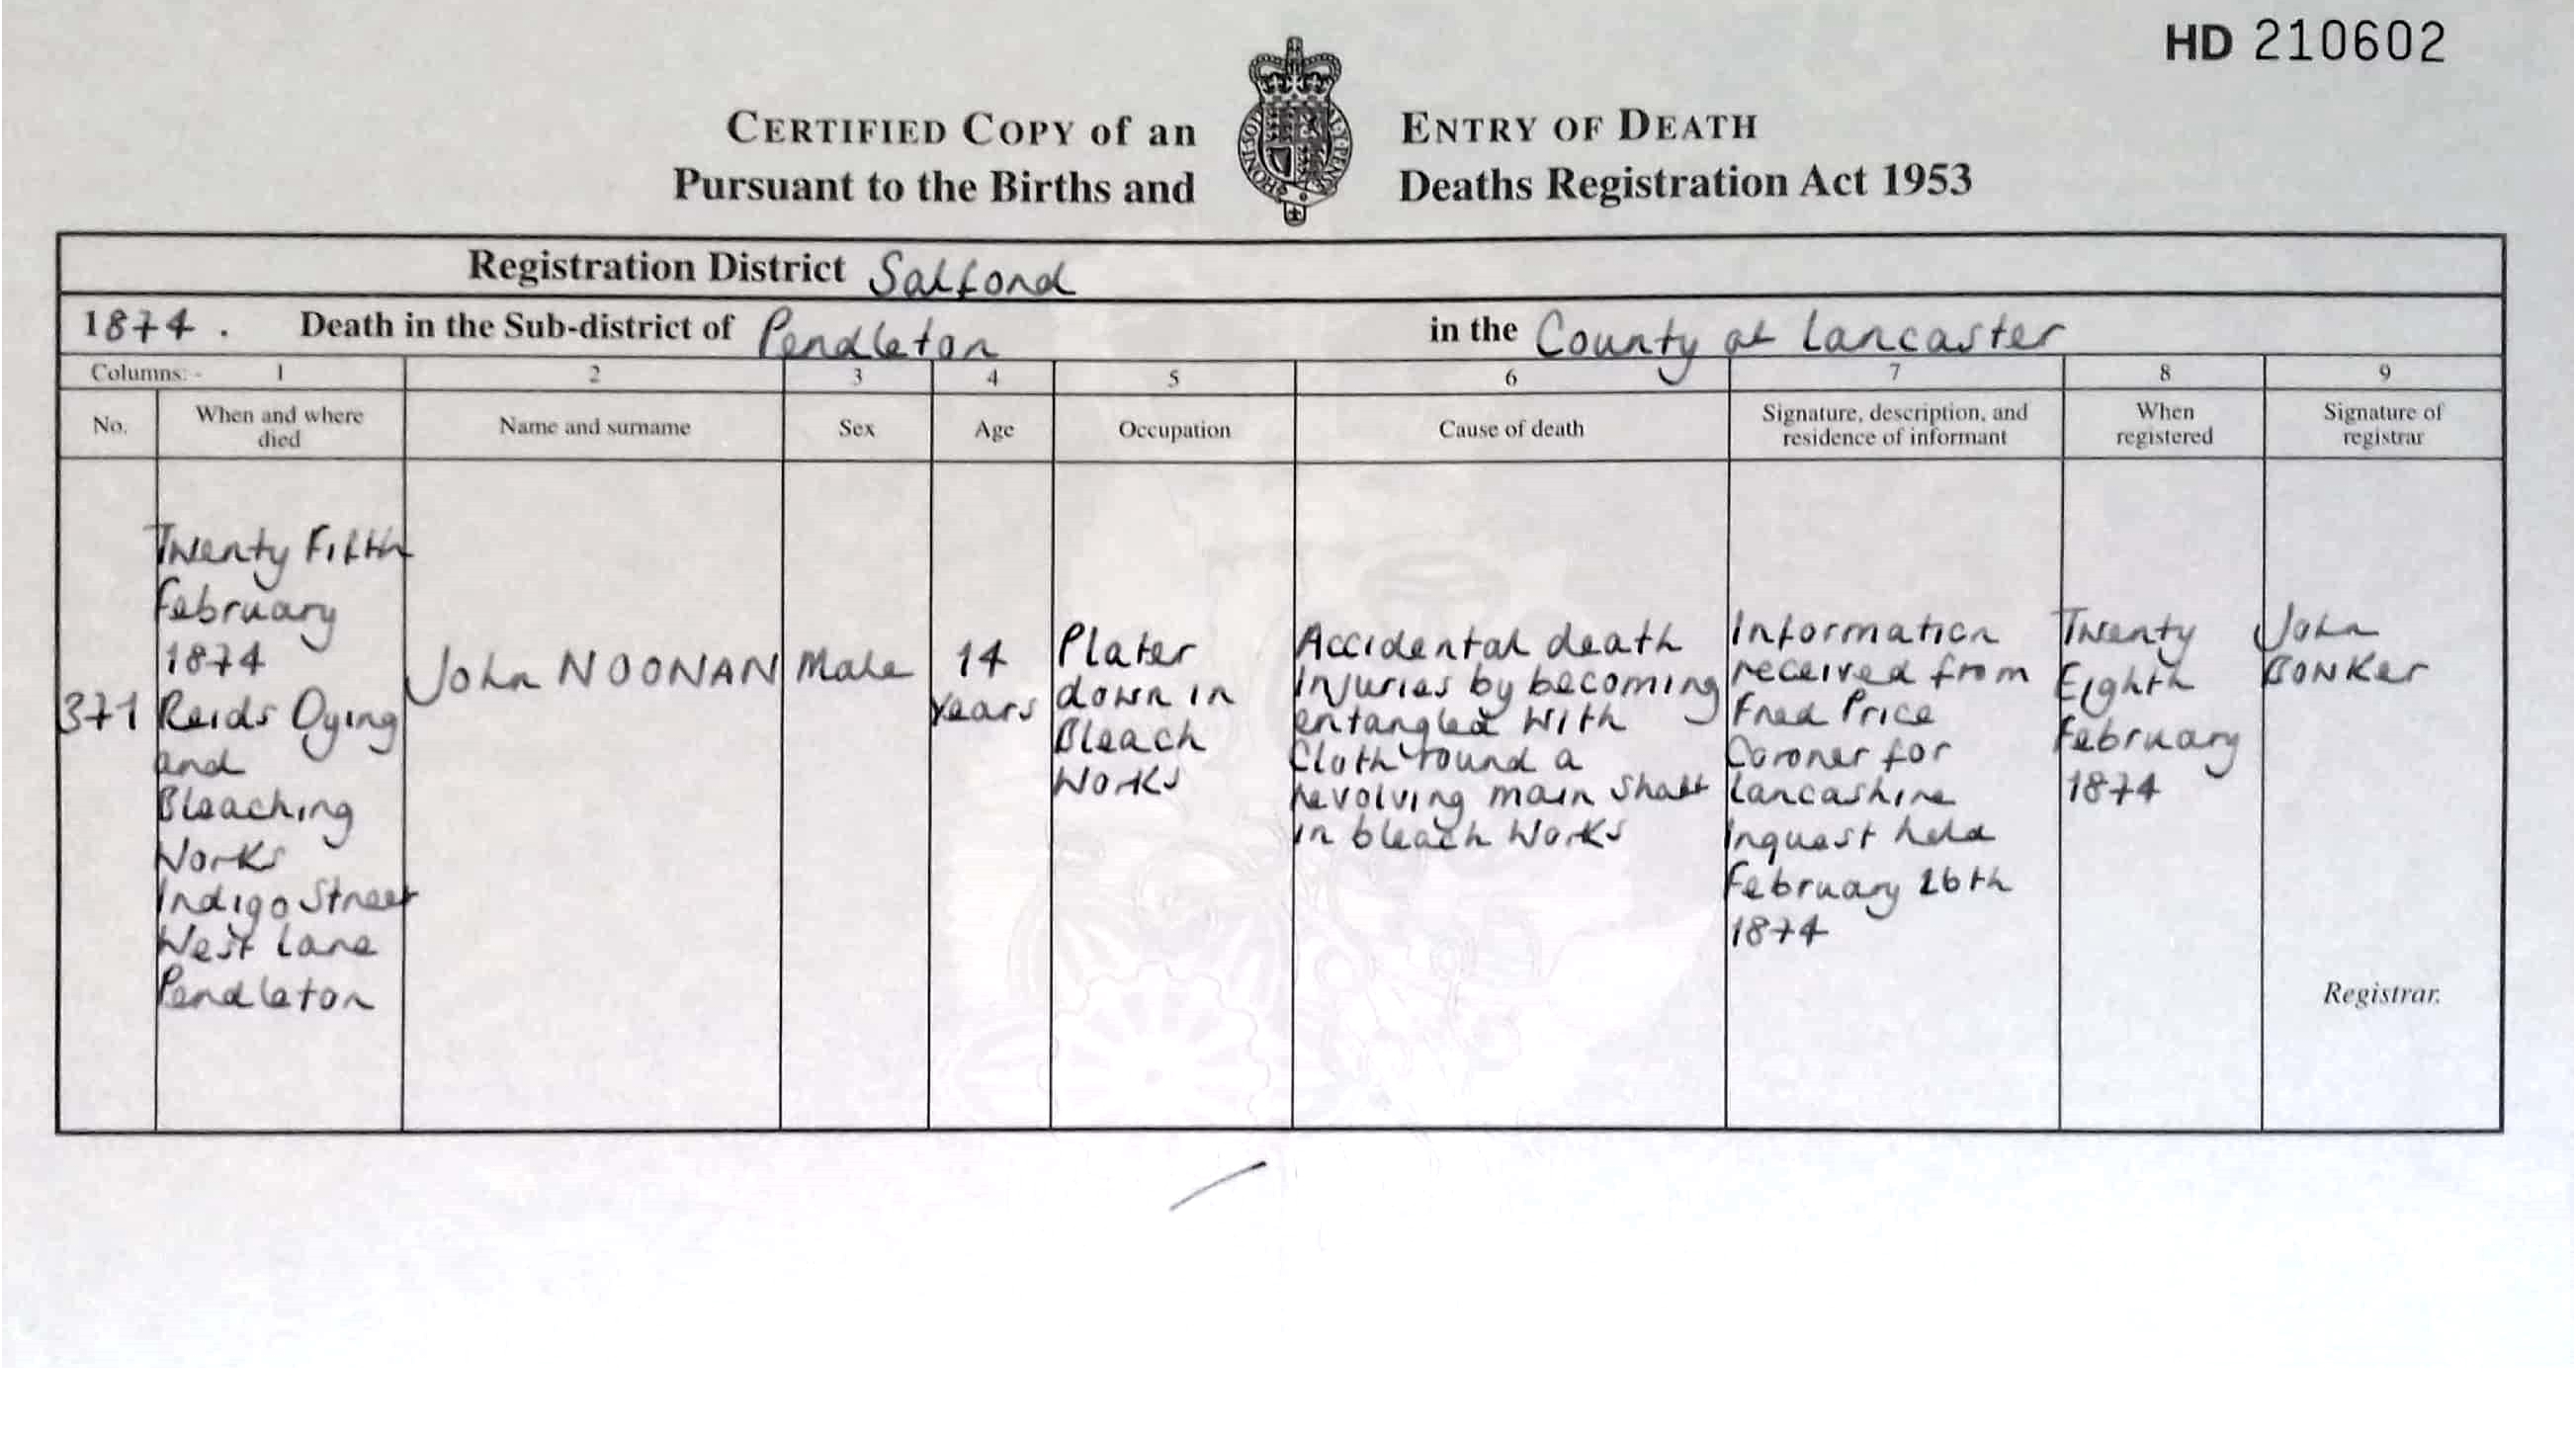 HD 210602
CERTIFIED COPY of an ENTRY OF DEATH
Pursuant to the Births and Deaths Registration Act 1953
Registration District Salford
1874. Death in the Sub-district of Pendleton in the County of Lancaster
Columns:- 1 2 3 4 5 6 7 8 9
No.
When and where
died
Name and surname
Sex
Age
Occupation
Cause of death
Signature, description, and
residence of informant
When
registered
Signature of
registrar
371
Twenty Fifth
February
1874
Reids Dying
and
Bleaching
Works
Indigo Street
West Lane
Pendleton
John NOONAN
Male
14
years
Plater
down in
Bleach
Works
Accidental death
Injuries by becoming
entangled with
Cloth round a
revolving main shaft
in bleach works
Information
received from
Fred Price
Coroner for
Lancashire
Inquest held
February 26th
1874
Twenty
Eighth
February
1874
John
BONKER
Registrar.